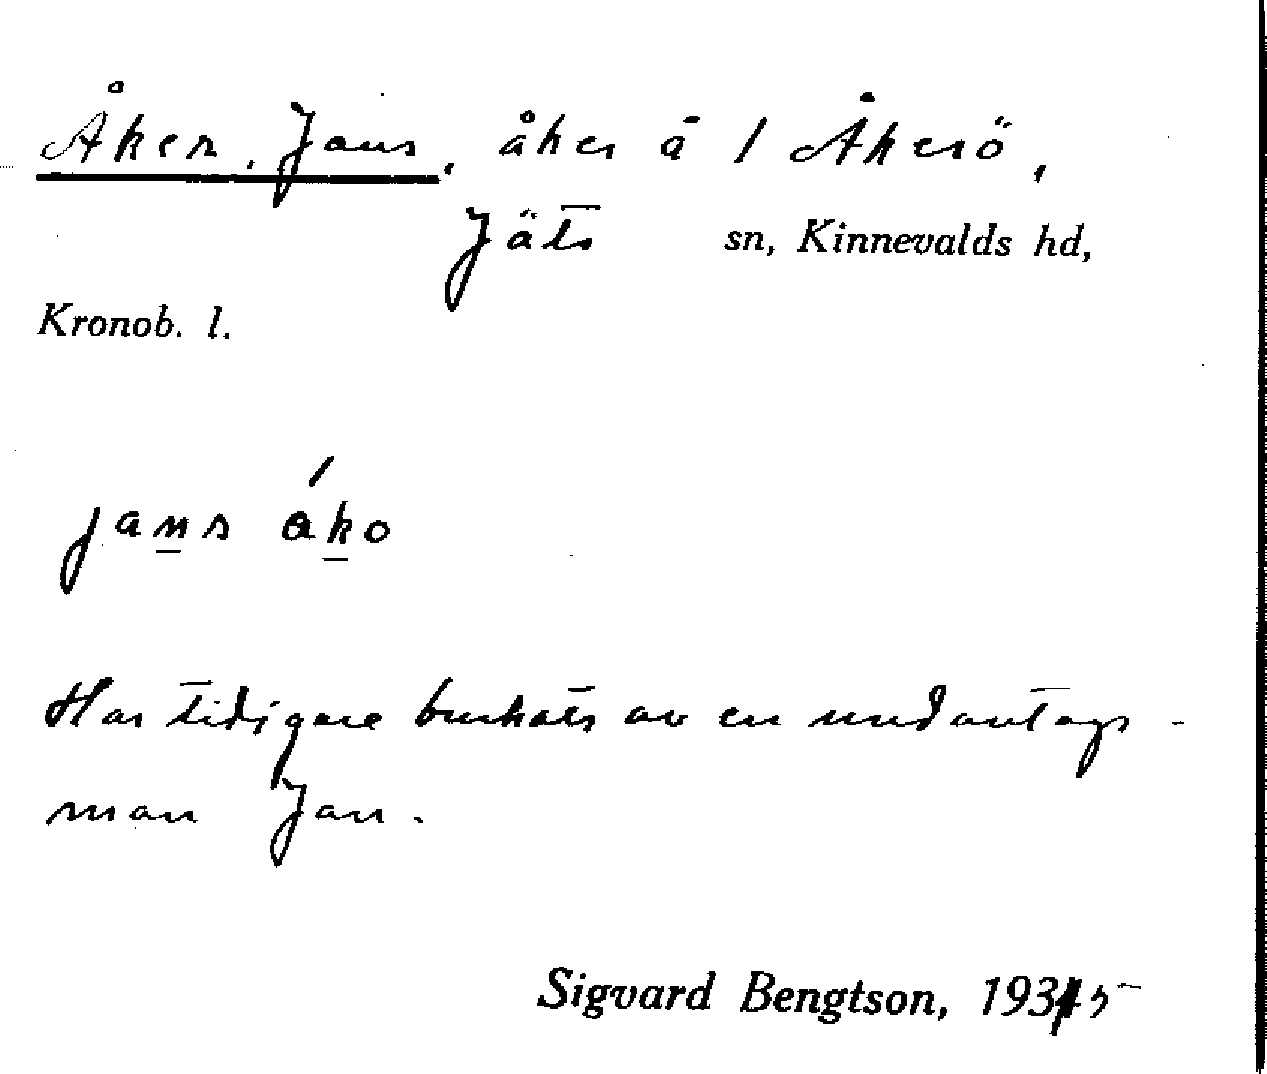 Åkern, Jans, åker å 1 Åkerö,
Jäts sn, Kinnevalds hd,
Kronob. l.
jans áko
Har tidigare brukats av en undantags-
man Jan.
Sigvard Bengtson, 1935